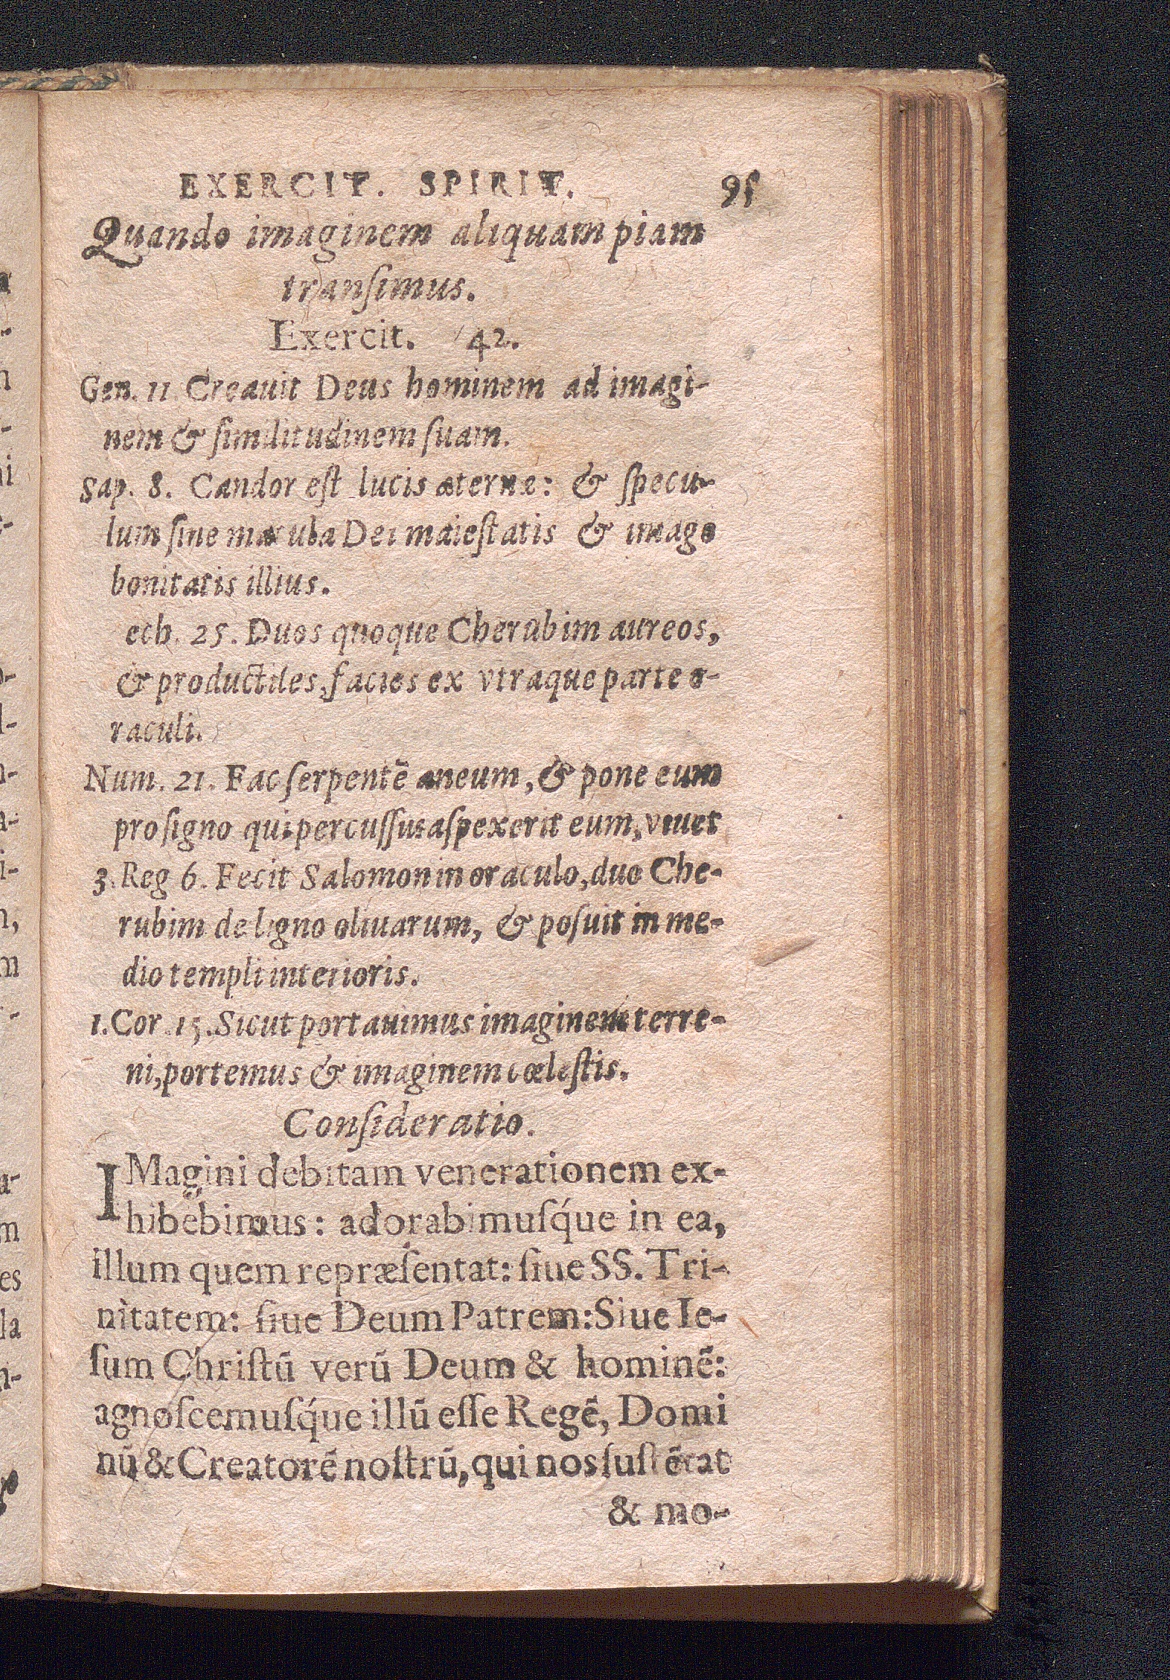 EXERCIT. SPIRIT. 95
Quando imaginem aliquam piam
tranſimus.
Exercit. 42.
Gen. 11 Creauit Deus hominem ad imagi-
nem & ſimilitudinem ſuam.
Sap. 8. Candor eſt lucis æternæ: & ſpecu-
lum ſine macula Dei maieſtatis & imago
bonitatis illius.
ech. 25. Duos quoque Cherubim aureos,
& productiles, facies ex vtraque parte o-
raculi.
Num. 21. Fac ſerpentē æneum, & pone eum
pro ſigno qui percuſſus aſpexerit eum, viuet
3. Reg 6. Fecit Salomon in oraculo, duo Che-
rubim de ligno oliuarum, & poſuit in me-
dio templi interioris.
1. Cor. 15. Sicut portauimus imaginem terre-
ni, portemus & imaginem cœleſtis.
Conſideratio.
IMagini debitam venerationem ex-
hibebimus: adorabimuſq́ue in ea,
illum quem repræſentat: ſiue SS. Tri-
nitatem: ſiue Deum Patrem: Siue Ie-
ſum Chriſtū verū Deum & hominē:
agnoſcemuſq́ue illū eſſe Regē, Domi
nū & Creatorē noſtrū, qui nos ſuſtētat
& mo-